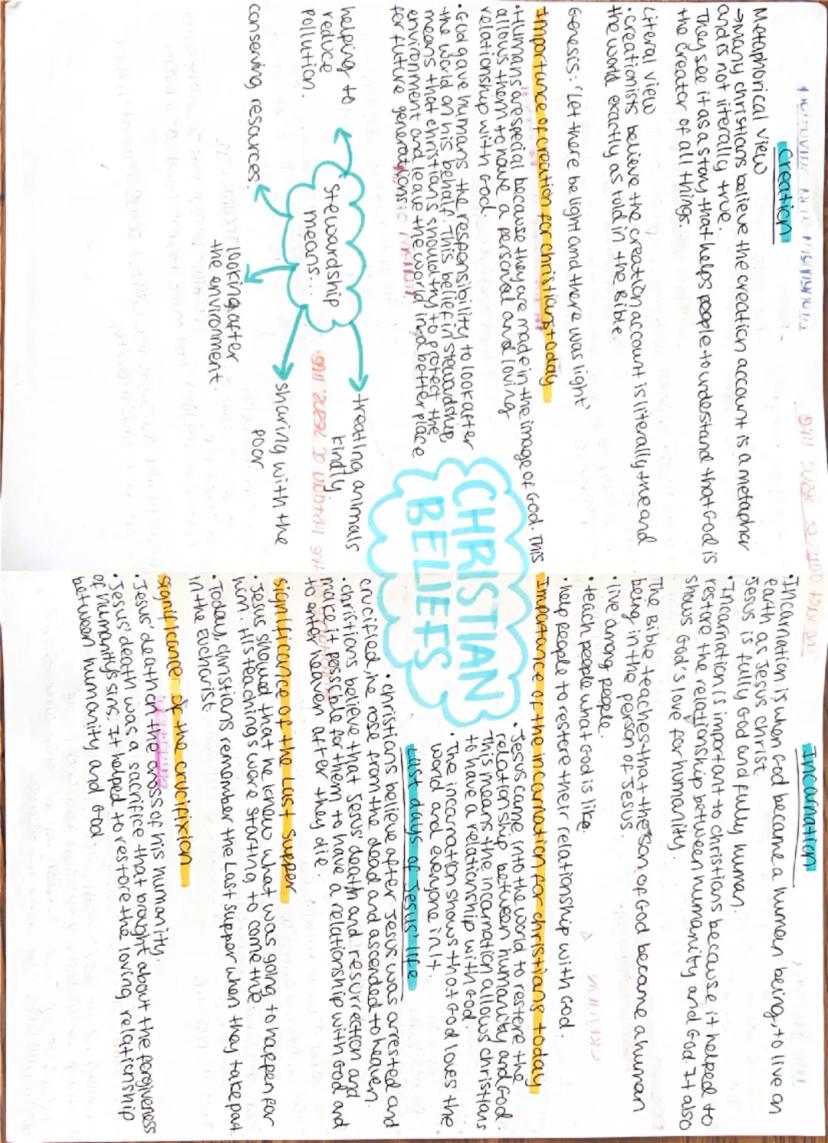 Creation
Metaphorical view
→Many christians believe the creation account is a metaphor
and is not literally true.
They see it as a story that helps people to understand that God is
the creator of all things.
Literal view
• Creationists believe the creation account is literally true and
the world exactly as told in the Bible.
Genesis: 'Let there be light and there was light'
Importance of creation for christians today
• Humans are special because they are made in the image of God. This
allows them to have a personal and loving
relationship with God.
• God gave humans the responsibility to look after
the world on his behalf. This belief in stewardship
means that christians should try to protect the
environment and leave the world in a better place
for future generations
stewardship
means...
helping to
reduce
pollution.
conserving resources.
looking after
the environment.
sharing with the
poor
treating animals
kindly
CHRISTIAN
BELIEFS
Incarnation
• Incarnation is when God became a human being, to live on
earth as Jesus christ
Jesus is fully God and fully human.
• Incarnation is important to christians because it helped to
restore the relationship between humanity and God It also
shows God's love for humanity.
The Bible teaches that the son of God became a human
being in the person of Jesus.
• live among people
• teach people what God is like.
• help people to restore their relationship with God.
Importance of the incarnation for christians today
• Jesus came into the world to restore the
relationship between humanity and God.
This means the incarnation allows christians
to have a relationship with God.
• The incarnation shows that God loves the
world and everyone in it.
Last days of Jesus' life
• christians believe after Jesus was arrested and
crucified he rose from the dead and ascended to heaven.
• christians believe that Jesus death and resurrection and
makes it possible for them to have a relationship with God and
to enter heaven after they die.
significance of the Last supper
• Jesus showed that he knew what was going to happen for
him. His teachings were starting to come true.
• Today, christians remember the Last supper when they take part
in the Eucharist.
significance of the crucifixion
• Jesus' death on the cross of his humanity.
• Jesus' death was a sacrifice that brought about the forgiveness
of humanity's sins. It helped to restore the loving relationship
between humanity and God.